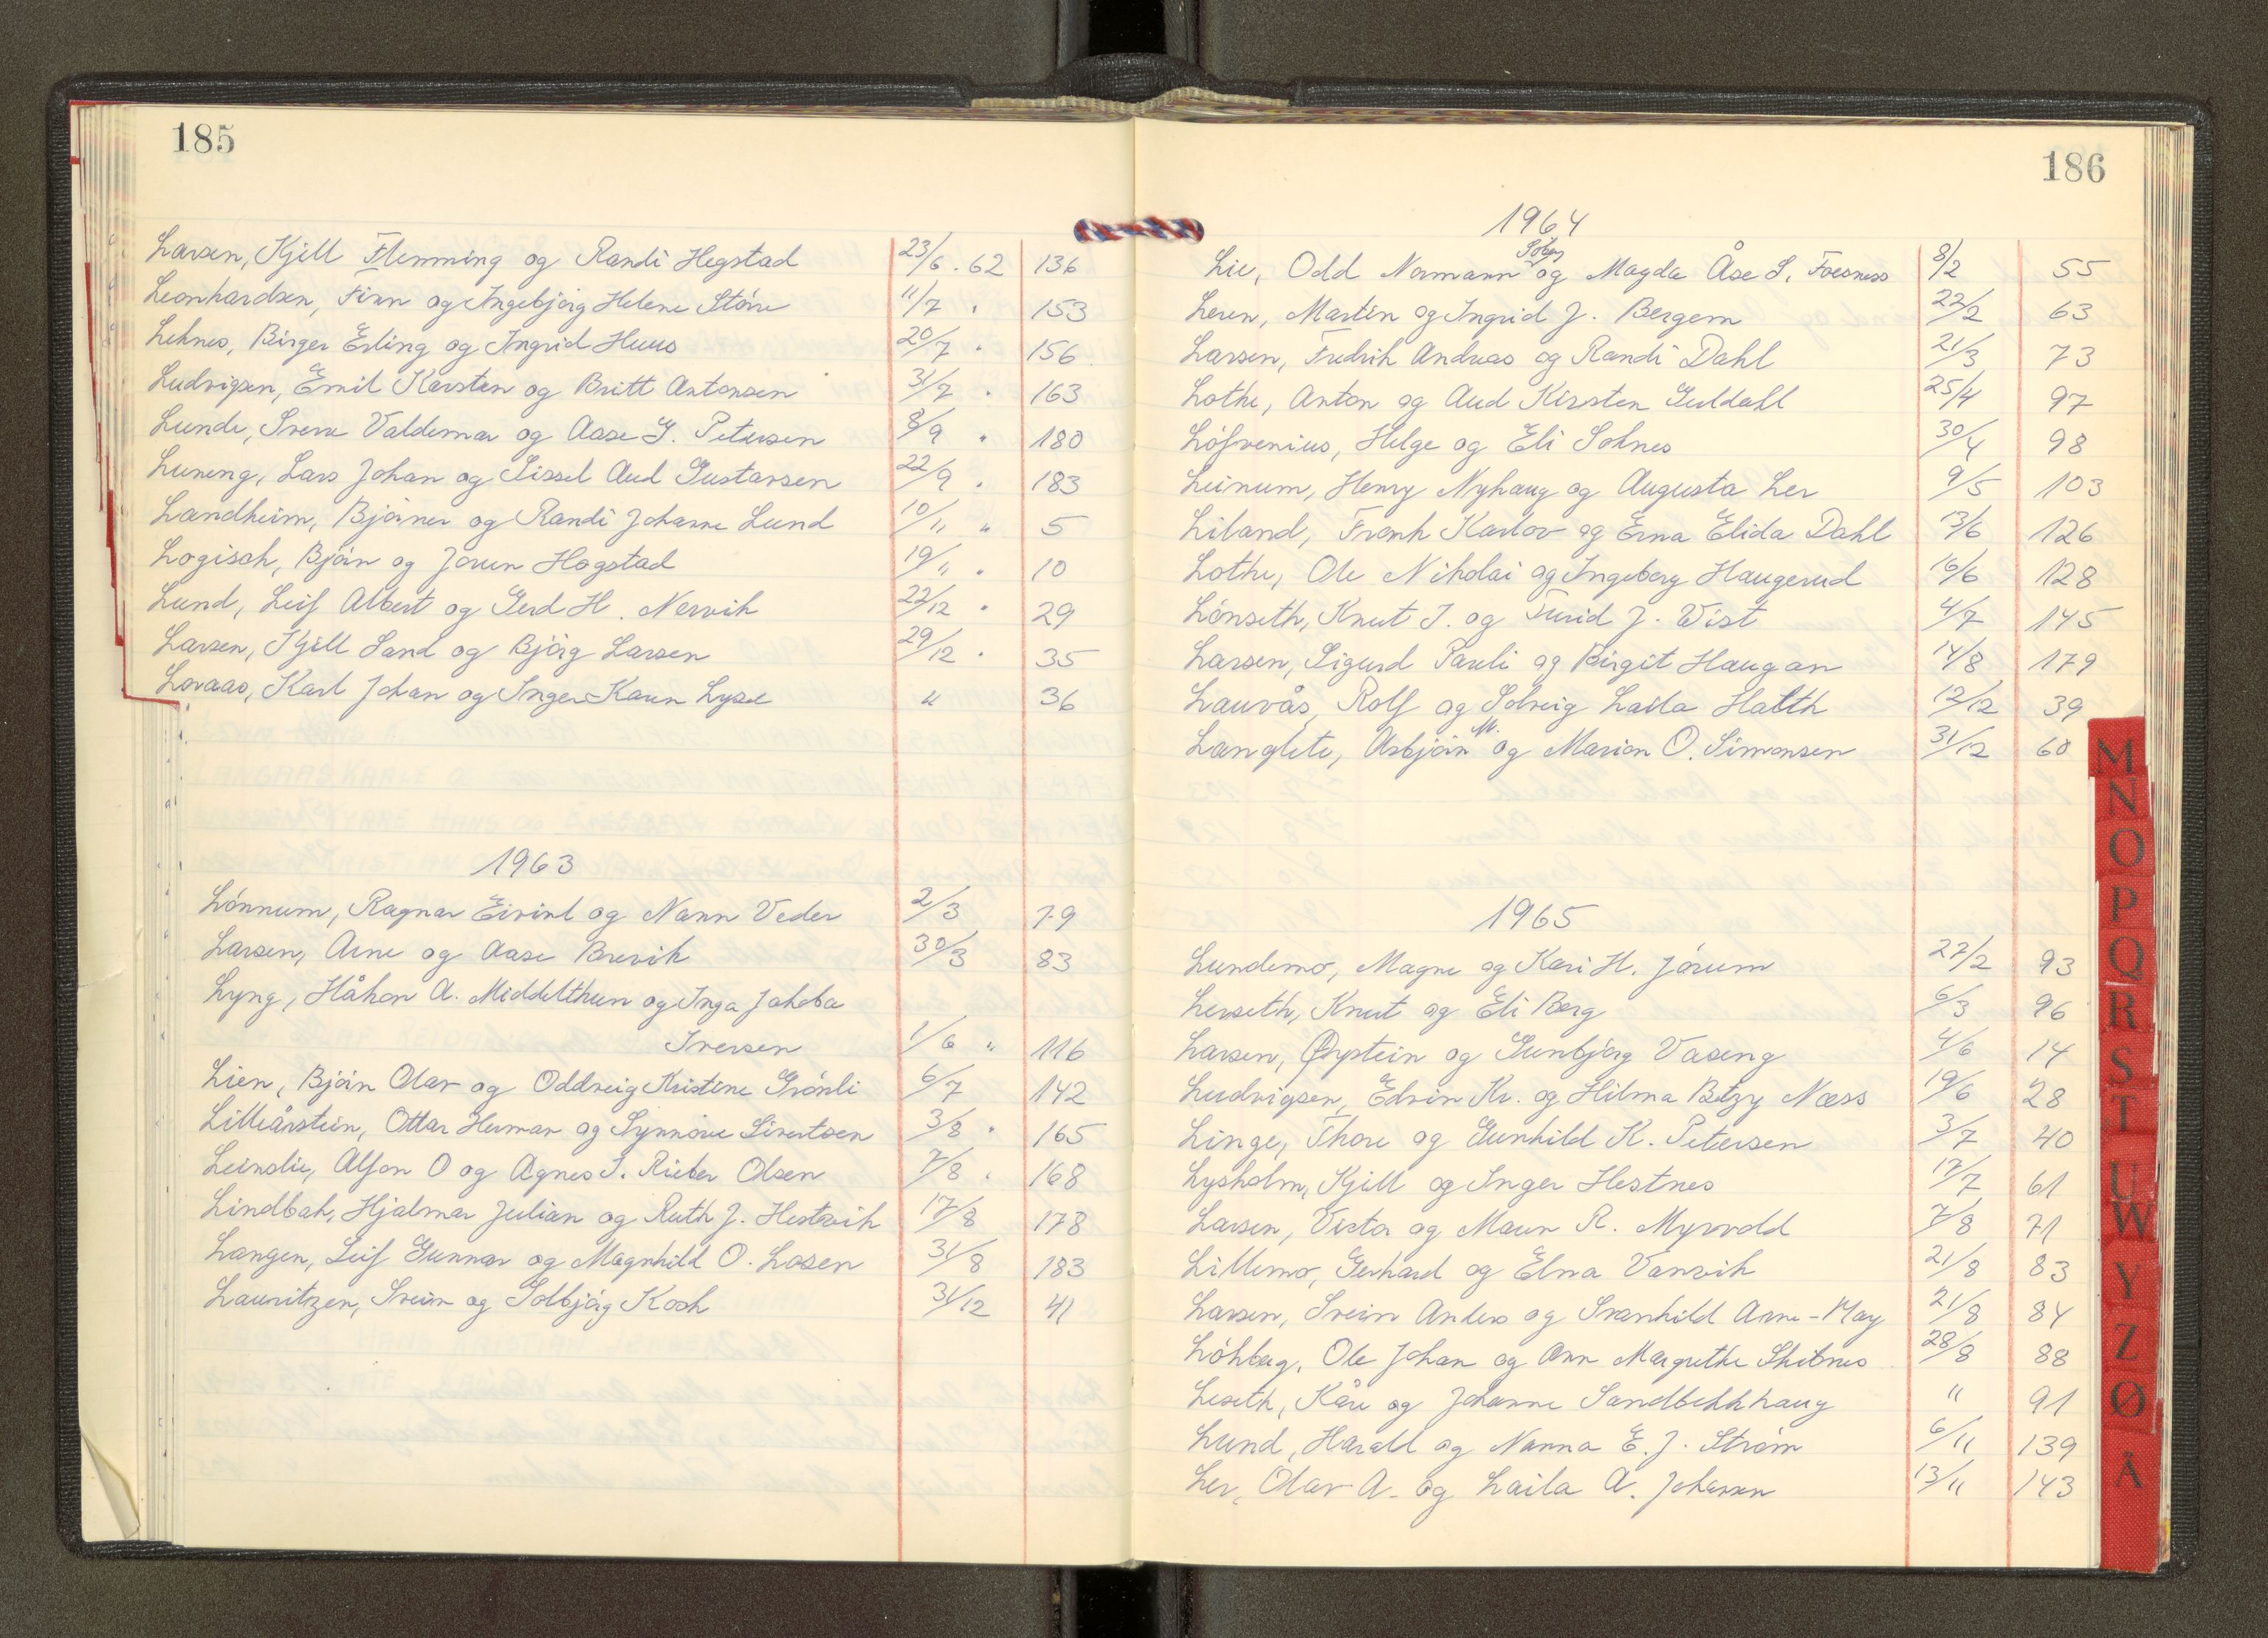 185
Larsen, Kjell Flemming og Randi Hegstad 23/6 . 62 136
Leonhardsen, Finn og Ingebjørg Helene Störe 11/7 " 153
Leknes, Birger Erling og Ingrid Huus 20/7 " 156
Ludvigsen, Emil Karsten og Britt Antonsen 31/7 " 163
Lunde, Sverre Valdemar og Aase G. Petersen 8/9 " 180
Luneng, Lars Johan og Sissel Aud Gustavsen 22/9 " 183
Landheim, Bjørner og Randi Johanne Lund 10/11 " 5
Logisch, Bjørn og Jorun Hogstad 19/11 " 10
Lund, Leif Albert og Gerd H. Nervik 22/12 " 29
Larsen, Kjell Sand og Bjørg Larsen 29/12 " 35
Lovaas, Karl Johan og Inger-Karin Lysø " 36
1963
Lønnum, Ragnar Eivind og Nann Veder 2/3 79
Larsen, Arne og Aase Brevik 30/3 83
Lyng, Håkon A. Middelthun og Inga Jakoba
Iversen 1/6 " 116
Lien, Bjørn Olav og Oddveig Kristine Grønli 6/7 142
Lilleårstein, Ottar Herman og Synnøve Sivertsen 3/8 " 165
Leinslie, Alfon O og Agnes I. Rieber Olsen 7/8 " 168
Lindbak, Hjalmar Julian og Ruth J. Hestvik 17/8 178
Langen, Leif Gunnar og Magnhild O. Losen 31/8 183
Lauritzen, Svein og Solbjørg Kosh 31/12 41
186
1964
Lie, Odd Normann Solus og Magda Åse S. Foesness 8/2 55
Leren, Martin og Ingrid J. Bergem 22/2 63
Larsen, Fredrik Andreas og Randi Dahl 21/3 73
Lothe, Anton og Aud Kirsten Guldahl 25/4 97
Löfvenius, Helge og Eli Soknes 30/4 98
Leinum, Henry Nyhaug og Augusta Ler 9/5 103
Liland, Frank Karlov og Erna Elida Dahl 13/6 126
Lothe, Ole Nikolai og Ingeborg Haugerud 16/6 128
Lønseth, Knut I. og Turid J. Wist 4/7 145
Larsen, Sigurd Pauli og Birgit Haugan 14/8 179
Lauvås, Rolf og Solveig Laila Halth 12/12 39
Langlete, Asbjørn M. og Marion O. Simonsen 31/12 60
1965
Lundemo, Magne og Kari H. Jørum 27/2 93
Lerseth, Knut og Eli Berg 6/3 96
Larsen, Øystein og Gunbjørg Vaseng 4/6 14
Ludvigsen, Edvin Kr. og Hilma Betzy Næss 19/6 28
Linge, Thore og Gunhild K. Petersen 3/7 40
Lysholm, Kjell og Inger Hestnes 17/7 61
Larsen, Victor og Maun R. Myrvold 7/8 71
Lillemo, Gerhard og Elna Vanvik 21/8 83
Larsen, Svein Anders og Svanhild Anne-May 21/8 84
Løkberg, Ole Johan og Ann Margrethe Skibnes 28/8 88
Leseth, Kåre og Johanne Sandbekkhaug " 91
Lund, Harald og Nanna E. J. Strøm 6/11 139
Ler, Olav A. og Laila A. Johansen 13/11 143
M
N
O
P
Q
R
S
T
U
W
Y
Z
Ø
Å